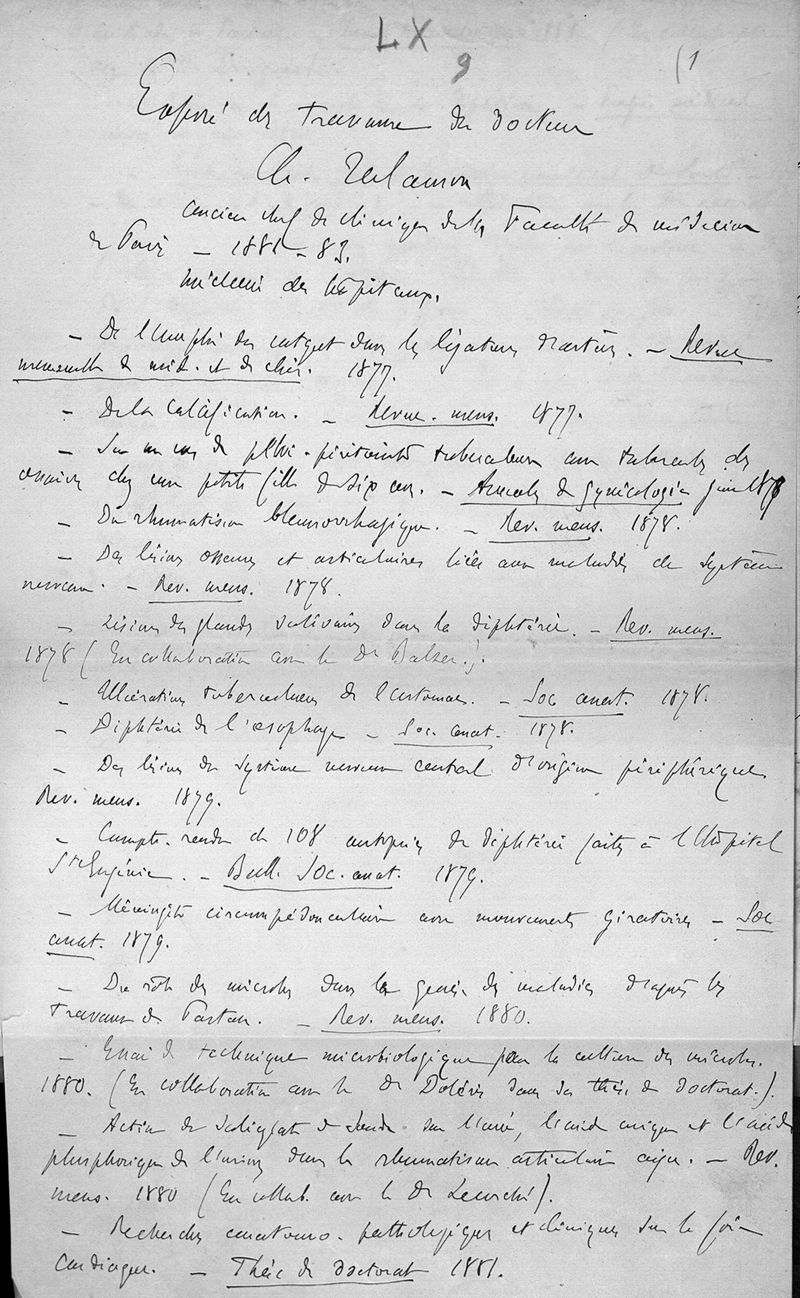 LX
9
(1
Exposé des travaux du Docteur
Ch. Talamon
ancien chef de clinique de la Faculté de médecine
de Paris — 1881-83.
Médecin des hôpitaux.
— De l'emploi du catgut dans les ligatures d'artères. — Revue
mensuelle de méd. et de chir. 1877.
— De la Calcification. — Revue. mens. 1877.
— Sur un cas de pelvi-péritonite tuberculeuse avec tubercules des
ovaires chez une petite fille de dix ans. — Annales de gynécologie 1878
— Du rhumatisme blennorrhagique. — Rev. mens. 1878.
— Des lésions osseuses et articulaires liées aux maladies du système
nerveux. — Rev. mens. 1878.
— Lésions des glandes salivaires dans la diphtérie. — Rev. mens.
1878 (En collaboration avec le Dr Balzer.).
— Ulcérations tuberculeuses de l'estomac. — Soc anat. 1878.
— Diphtérie de l'œsophage — Soc. anat. 1878.
— Des lésions du système nerveux central d'origine périphérique.
Rev. mens. 1879.
— Compte-rendu de 108 autopsies de diphtérie faites à l'hôpital
Ste Eugénie. — Bull. Soc. anat. 1879.
— Méningite circumpédonculaire avec mouvements giratoires — Soc
anat. 1879.
— Du rôle des microbes dans la genèse des maladies d'après les
travaux de Pasteur. — Rev. mens. 1880.
— Essai de technique microbiologique pour la culture des microbes.
1880. (En collaboration avec le Dr Doléris dans sa thèse de doctorat.).
— Action du Salicylate de Soude sur l'urée, l'acide urique et l'acide
phosphorique de l'urine dans le rhumatisme articulaire aigu. — Rev.
mens. 1880 (En collab. avec le Dr Lecorché).
— Recherches anatomo-pathologiques et cliniques sur le foie
cardiaque. — Thèse de doctorat 1881.